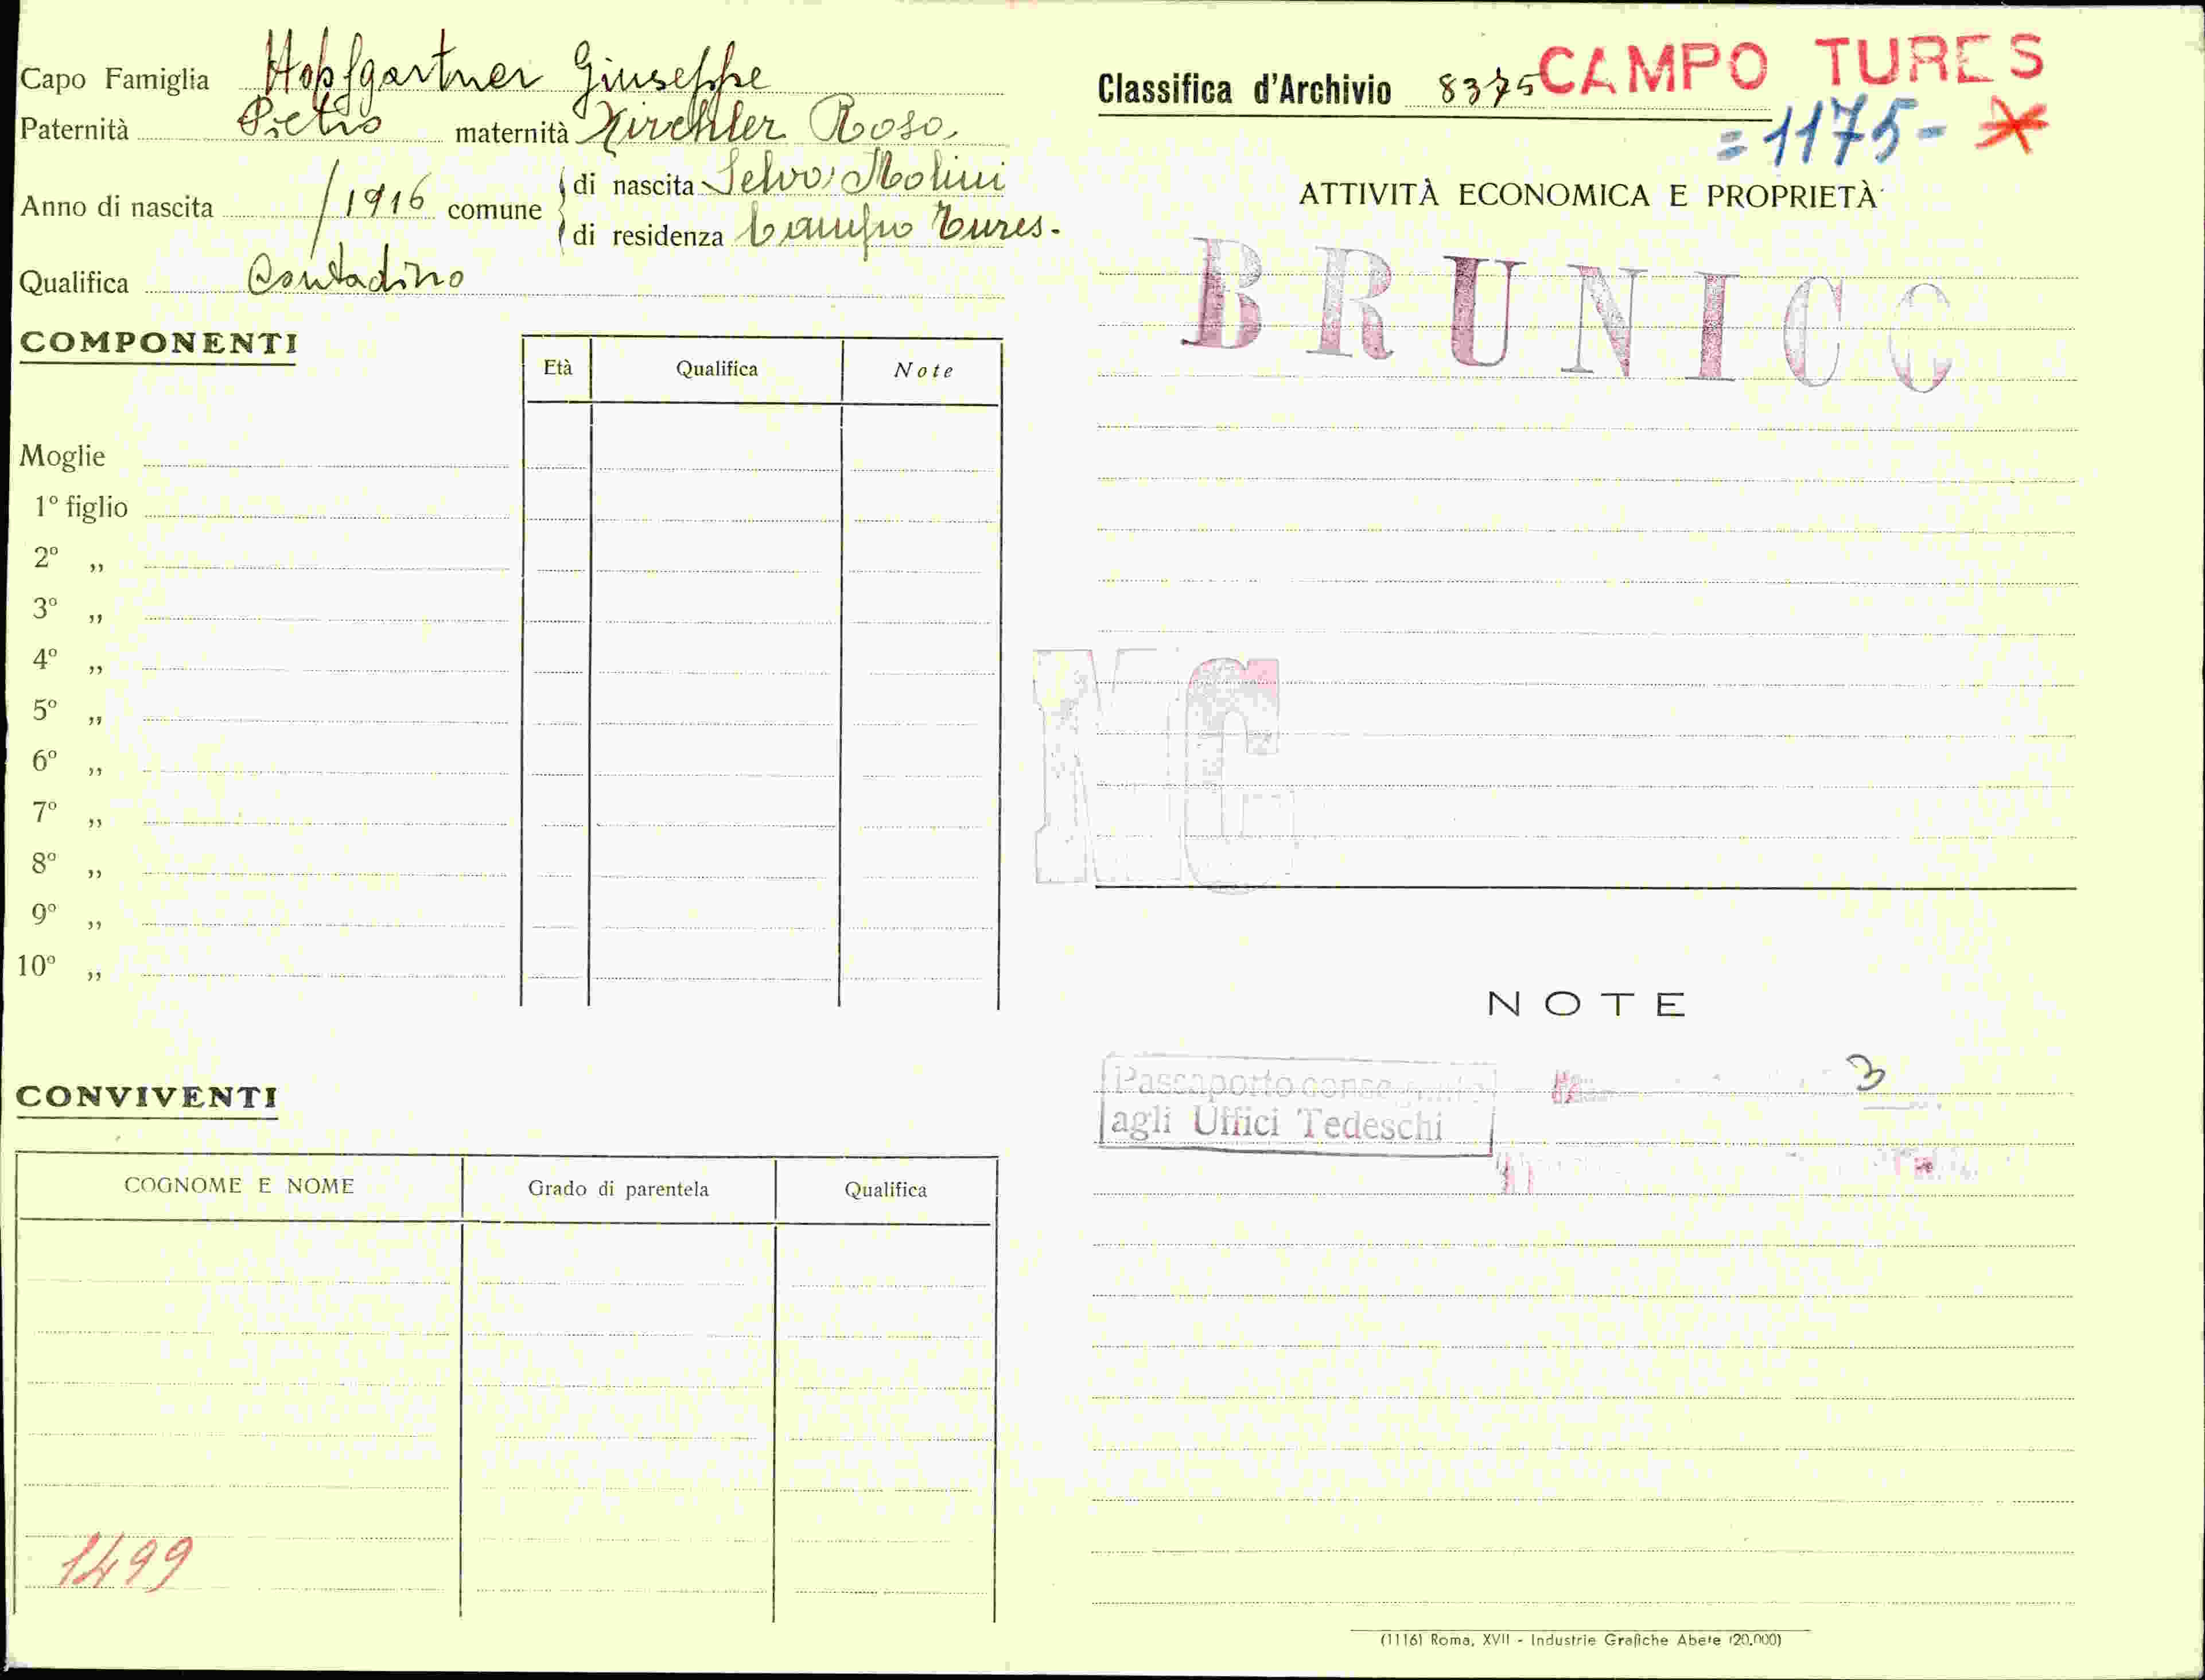 Capo Famiglia Hopfgartner Giuseppe
Paternità Pietro maternità Kirchler Rosa
Anno di nascita /1916 comune di nascita Selva Molini
di residenza Campo Tures.
Qualifica Contadino
COMPONENTI
Età Qualifica Note
Moglie
1º figlio
2º „
3º „
4º „
5º „
6º „
7º „
8º „
9º „
10º „
CONVIVENTI
COGNOME E NOME Grado di parentela Qualifica
1499
Classifica d'Archivio 8375 CAMPO TURES
=1175-
ATTIVITÀ ECONOMICA E PROPRIETÀ
BRUNICO
NC
NOTE
Passaporto consegnato
agli Uffici Tedeschi
3
(1116) Roma, XVII - Industrie Grafiche Abete (20.000)